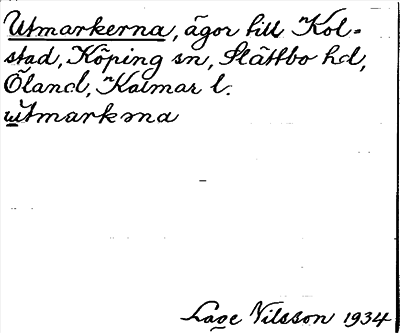 Utmarkerna, ägor till Kol-
stad, Köping sn, Slättbo hd,
Öland, Kalmar l.
utmarkəna
Lage Nilsson 1934